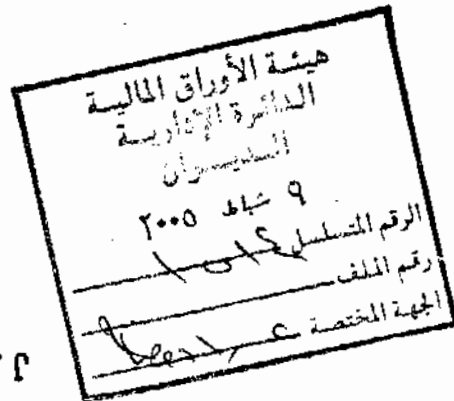 هيئة الأوراق المالية
الدائرة الإدارية
الديوان
٩ شباط ٢٠٠٥
الرقم المتسلسل
رقم الملف
الجهة المختصة